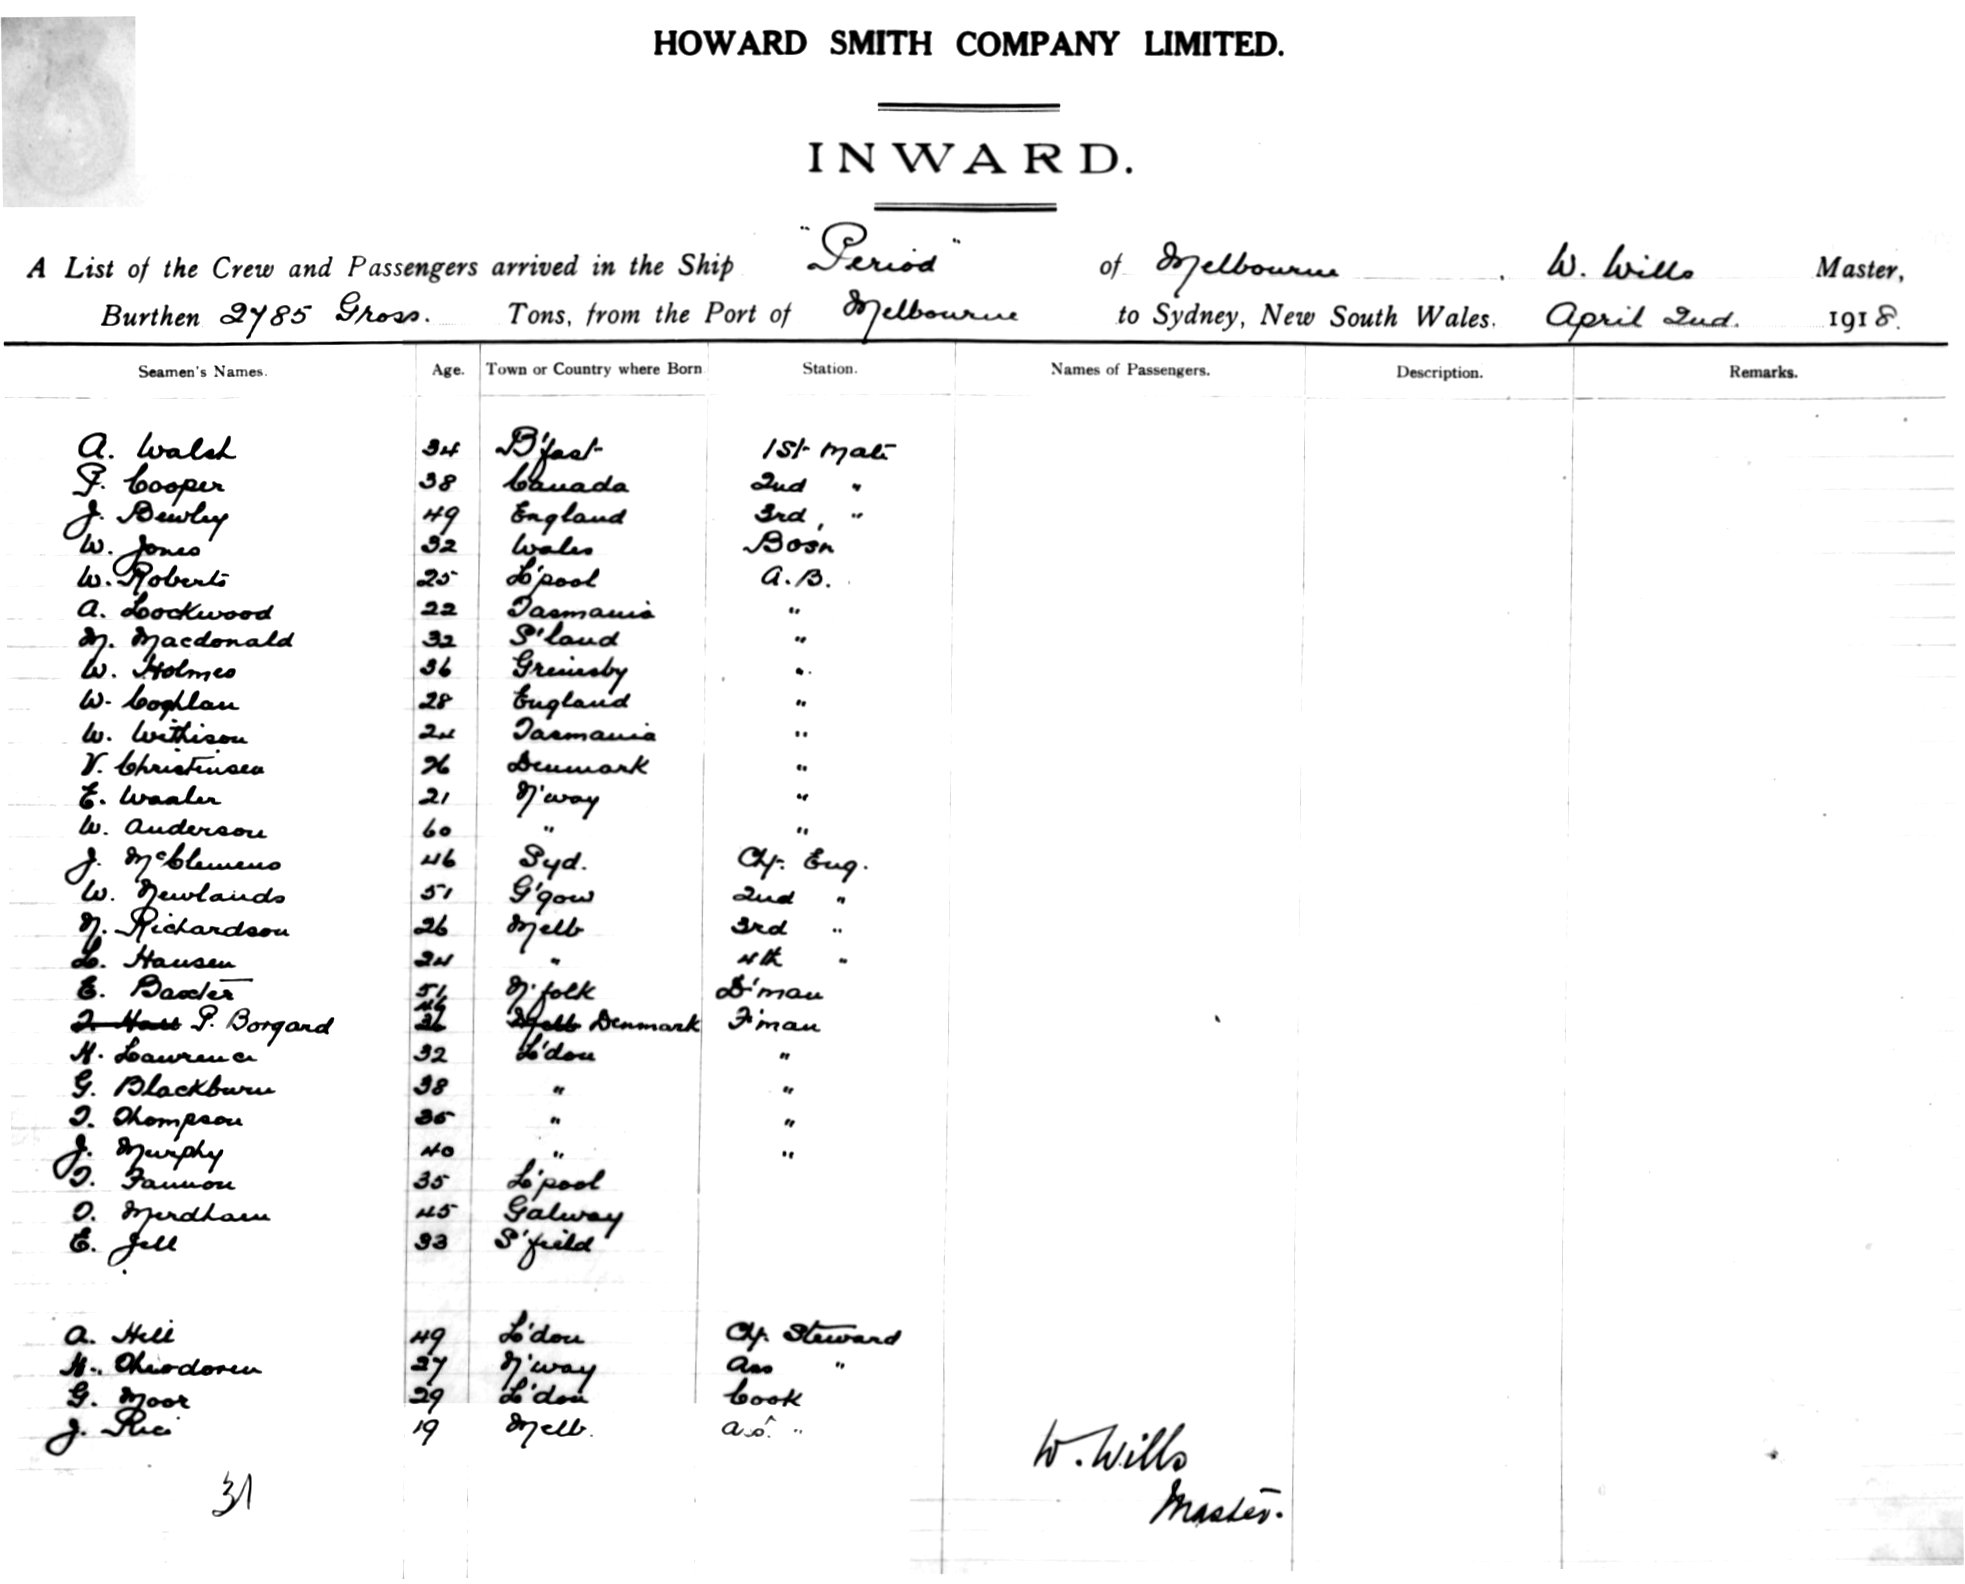 HOWARD SMITH COMPANY LIMITED.
INWARD.
A List of the Crew and Passengers arrived in the Ship "Period" of Melbourne, W. Wills Master,
Burthen 2785 Gross. Tons, from the Port of Melbourne to Sydney, New South Wales. April 2nd. 1918.
Seamen's Names. Age. Town or Country where Born Station. Names of Passengers. Description. Remarks.
A. Walsh 34 B'fast 1st Mate
P. Cooper 38 Canada 2nd "
J. Bewley 49 England 3rd, "
W. Jones 32 Wales Bosn
W. Roberts 25 L'pool A.B.
A. Lockwood 22 Tasmania "
M. Macdonald 32 S'land "
W. Holmes 36 Grimsby "
W. Coghlan 28 England "
W. Withison 24 Tasmania "
V. Christinsen 26 Denmark "
E. Waaler 21 N'way "
W. Anderson 60 " "
J. McClemens 46 Syd. Chf. Eng.
W. Newlands 51 G'gow 2nd "
N. Richardson 26 Melb 3rd "
L. Hansen 24 " 4th "
E. Baxter 51 N'folk D'man
P. Borgard 46 Denmark F'man
H. Lawrence 32 L'don "
G. Blackburn 38 " "
T. Thompson 35 " "
J. Murphy 40 " "
T. Fannon 35 L'pool
O. Merdham 45 Galway
E. Jell 33 S'field
A. Hill 49 L'don Chf. Steward
H. Theodoren 27 N'way Ass "
G. Moor 29 L'don Cook
J. Rice 19 Melb. Ass. "
W. Wills
Master.
31